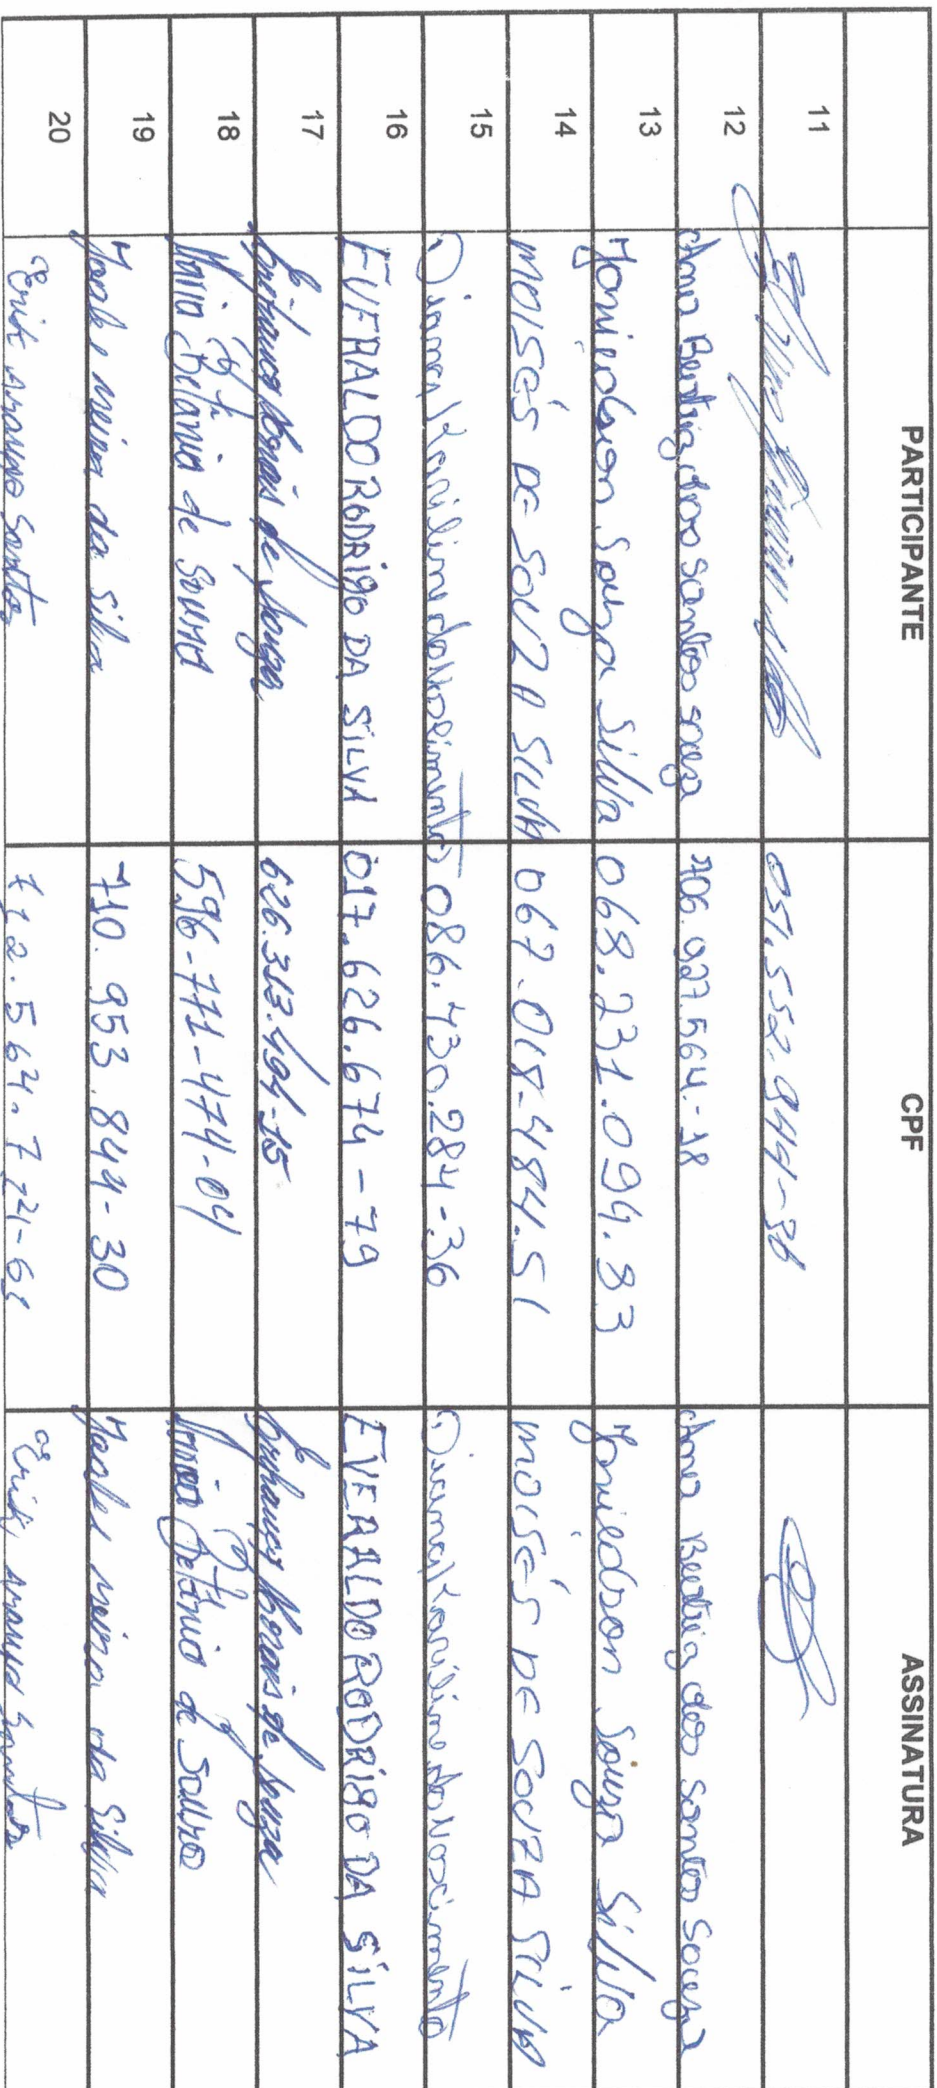 PARTICIPANTE CPF ASSINATURA
11 051.552.944-86
12 Ana Beatriz dos Santos Souza 706.927.564.-18 Ana Beatriz dos Santos Souza
13 Jonielson Souza Silva 068.231.094.83 Jonielson Souza Silva
14 MOISÉS DE SOUZA SILVA 067.018-484.51 MOISÉS DE SOUZA SILVA
15 Kariline do Nascimento 086.430.284-36 Kariline do Nascimento
16 EVERALDO RODRIGO DA SILVA 017.626.674-79 EVERALDO RODRIGO DA SILVA
17 de Souza 626.313.494-15 de Souza
18 Maria Betania de Souza 596-771-474-04 Maria Betânia de Souza
19 da Silva 710.953.844-30 da Silva
20 Erik Santos Erik Santos